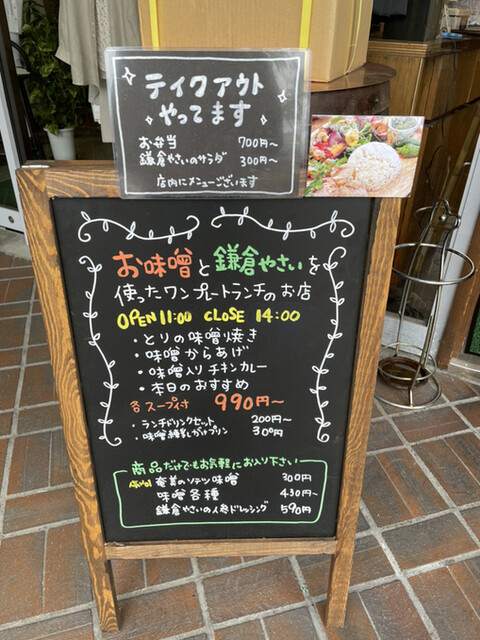 テイクアウト
やってます
お弁当 700円〜
鎌倉やさいのサラダ 300円〜
店内にメニューございます
お味噌と鎌倉やさいを
使ったワンプレートランチのお店
OPEN 11:00 CLOSE 14:00
・とりの味噌焼き
・味噌からあげ
・味噌入りチキンカレー
・本日のおすすめ
各スープ付 990円〜
・ランチドリンクセット 200円〜
・味噌練乳しかけプリン 300円
商品だけでもお気軽にお入り下さい
奄美のソテツ味噌 300円
味噌各種 430円〜
鎌倉やさいの人参ドレッシング 590円